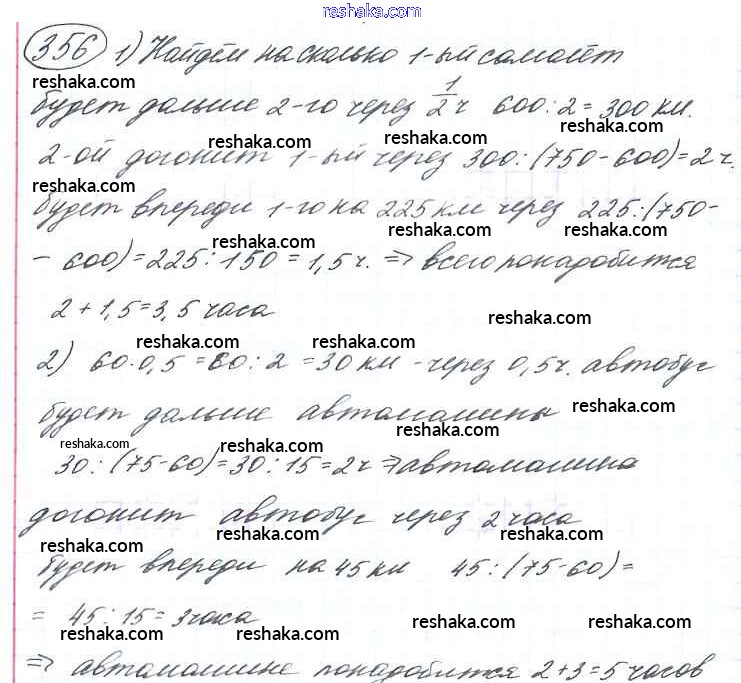 reshaka.com
356 1) Найдём на сколько 1-ый самолёт
reshaka.com reshaka.com
будет дальше 2-го через 1/2 ч 600:2=300 км.
reshaka.com reshaka.com
2-ой догонит 1-ый через 300:(750-600)=2ч.
reshaka.com reshaka.com
будет впереди 1-го на 225 км через 225:(750-
reshaka.com reshaka.com
- 600)=225:150=1,5ч. => всего понадобится
2+1,5=3,5 часа
reshaka.com
reshaka.com
2) 60·0,5=60:2=30 км - через 0,5ч. автобус
будет дальше автомашины
reshaka.com
reshaka.com reshaka.com
30:(75-60)=30:15=2ч => автомашина
догонит автобус через 2 часа
reshaka.com reshaka.com
будет впереди на 45 км 45:(75-60)=
= 45:15=3часа
reshaka.com reshaka.com
reshaka.com reshaka.com
=> автомашине понадобится 2+3=5 часов